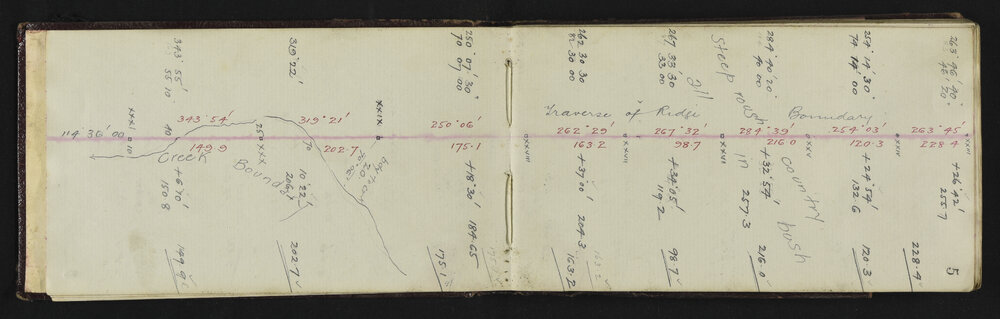 343° 55'
55 10
319° 22'
250° 07' 30"
70 07 00
262 30 30
82 30 00
267 33' 30
33 00
284° 40' 20"
46 00
254° 14' 30"
74 14' 00
263° 46' 40"
48' 20"
steep rough country
all in bush
Traverse of Ridge Boundary
XXXI
XXX
XXIX
XXVIII
XXVII
XXIV
XXIII
114° 36' 00"
343° 54'
319° 21'
250° 06'
262° 29
267° 32'
284° 39'
254° 03
263° 45
10
10
250
70
149.9
202.7
175.1
163.2
98.7
216.0
120.3
228.4
Creek Boundary
+6°10'
150.8
149.9
10° 22'
206.4
202.7
+18° 30'
184.65
175.1
+37°00'
204.3
163.2
+34°05'
119.2
98.7
+32° 54'
257.3
216.0
+24° 54'
132.6
120.3
+26° 42'
255.7
228.4
5